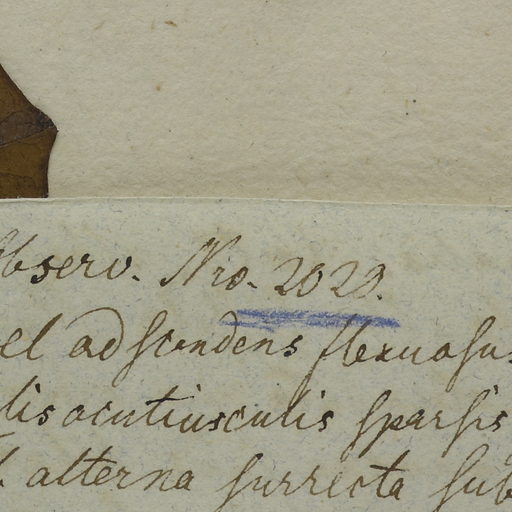 bserv. Nro. 2029.
el adscendens flexuosus
lis acutiusculis sparsis
l. alterna surrecta sub